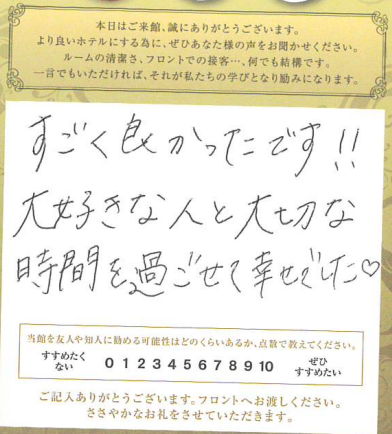 本日はご来館、誠にありがとうございます。
より良いホテルにする為に、ぜひあなた様の声をお聞かせください。
ルームの清潔さ、フロントでの接客…、何でも結構です。
一言でもいただければ、それが私たちの学びとなり励みになります。
すごく良かったです!!
大好きな人と大切な
時間を過ごせて幸せでした♡
当館を友人や知人に勧める可能性はどのくらいあるか、点数で教えてください。
すすめたくない 0 1 2 3 4 5 6 7 8 9 10 ぜひすすめたい
ご記入ありがとうございます。フロントへお渡しください。
ささやかなお礼をさせていただきます。